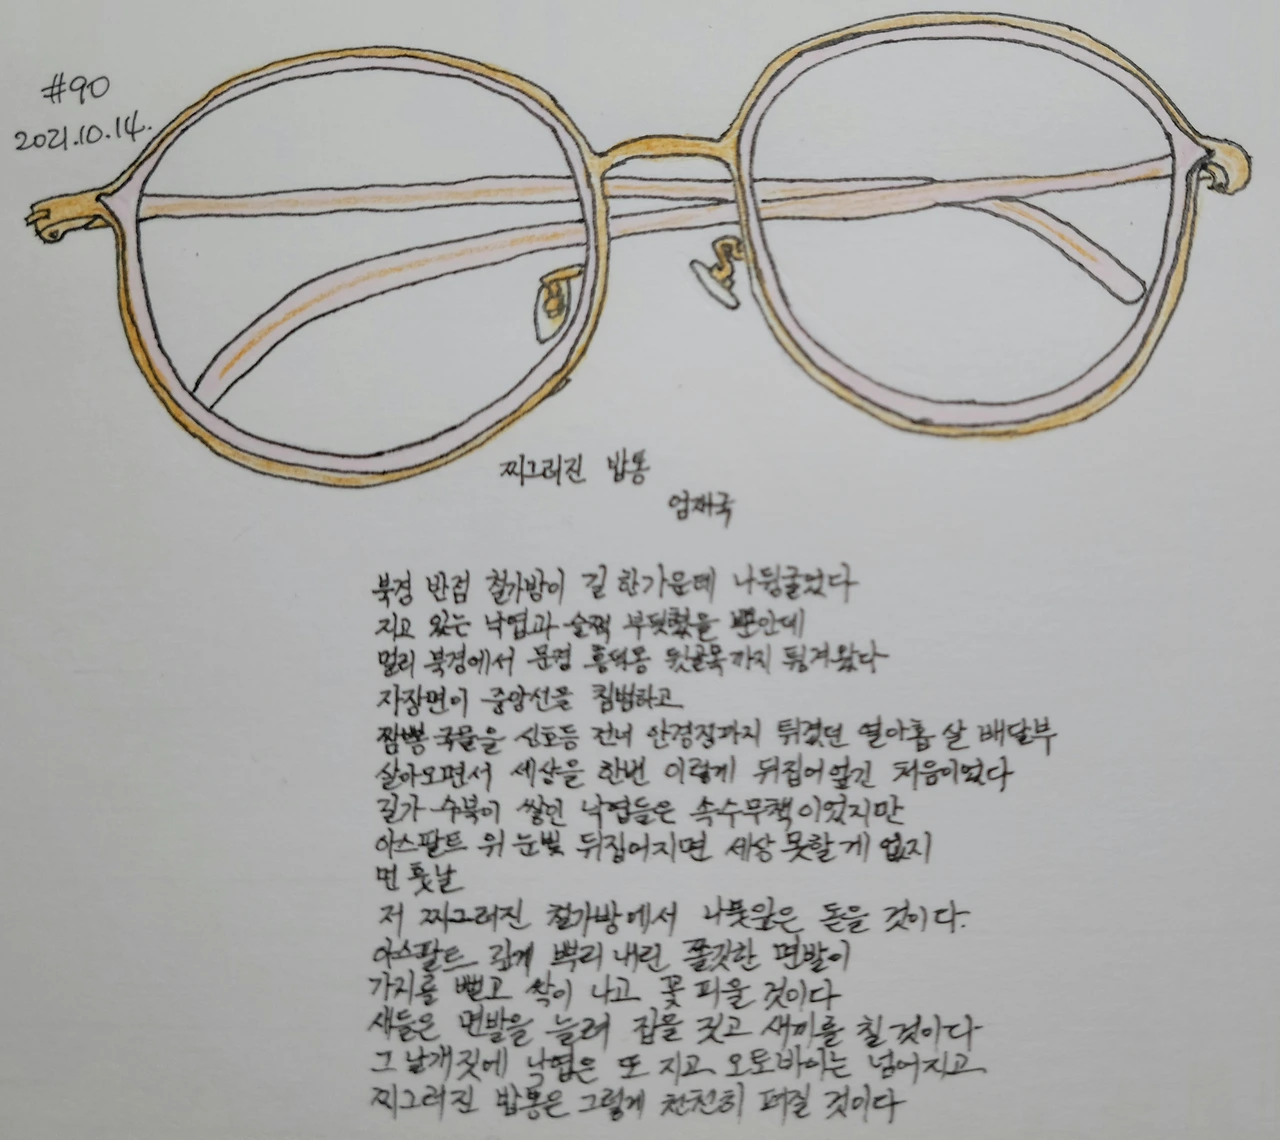 #90
2021.10.14.
찌그러진 밥통
엄재국
북경 반점 철가방이 길 한가운데 나뒹굴었다
지고 있는 낙엽과 슬쩍 부딪쳤을 뿐인데
멀리 북경에서 문경 흥덕동 뒷골목까지 튕겨왔다
자장면이 중앙선을 침범하고
짬뽕 국물을 신호등 건너 안경점까지 튀겼던 열아홉 살 배달부
살아오면서 세상을 한번 이렇게 뒤집어엎긴 처음이었다
길가 수북이 쌓인 낙엽들은 속수무책이었지만
아스팔트 위 눈빛 뒤집어지면 세상 못할 게 없지
먼 훗날
저 찌그러진 철가방에서 나뭇잎은 돋을 것이다.
아스팔트 깊게 뿌리 내린 쫄깃한 면발이
가지를 뻗고 싹이 나고 꽃 피울 것이다
새들은 면발을 늘려 집을 짓고 새끼를 칠 것이다
그 날개짓에 낙엽은 또 지고 오토바이는 넘어지고
찌그러진 밥통은 그렇게 천천히 펴질 것이다